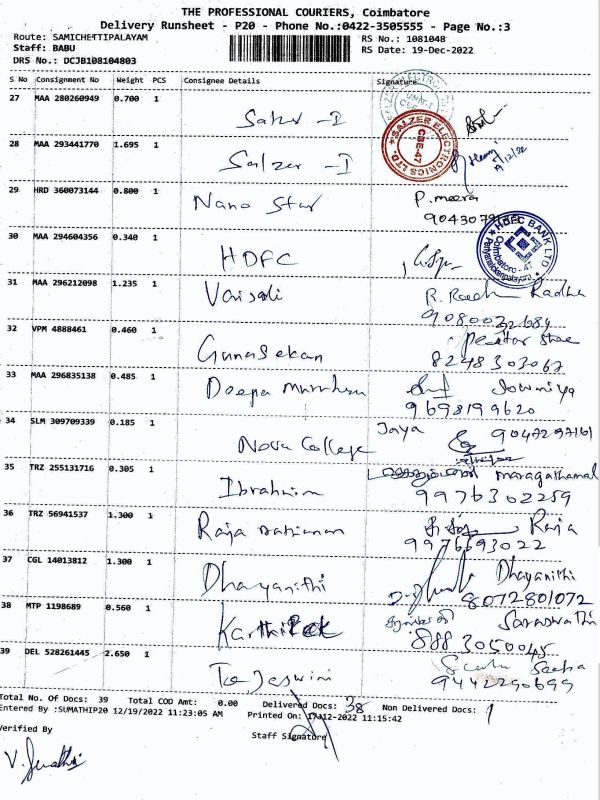 THE PROFESSIONAL COURIERS, Coimbatore
Delivery Runsheet - P20 - Phone No.:0422-3505555 - Page No.:3
Route: SAMICHETTIPALAYAM RS No.: 1081048
Staff: BABU RS Date: 19-Dec-2022
DRS No.: DCJB108104803
S No Consignment No Weight PCS Consignee Details Signature
27 MAA 280260949 0.700 1
28 MAA 293441770 1.695 1 Salzer - I
SALZER ELECTRONICS LTD. CBE-47
29 HRD 360073144 0.800 1 Nano Star P. meera
30 MAA 294604356 0.340 1 HDFC
HDFC BANK LTD Coimbatore - 47
31 MAA 296212098 1.235 1 Vaisali R. Radha
9080032684
32 VPM 4888461 0.460 1 Gunasekan
8248303067
33 MAA 296835138 0.485 1 Deepa Sowmiya
9698199620
34 SLM 309709339 0.185 1 Nova College Jaya 9047297161
35 TRZ 255131716 0.305 1 Ibrahim maragathamal
9976302259
36 TRZ 56941537 1.300 1 Raja Raja
9976693022
37 CGL 14013812 1.300 1 Dhayanithi Dhayanithi
8072801072
38 MTP 1198689 0.560 1 Saraswathi
8883050045
39 DEL 528261445 2.650 1 Tejaswini
9442290699
Total No. Of Docs: 39 Total COD Amt: 0.00 Delivered Docs: 38 Non Delivered Docs: 1
Entered By :SUMATHIP20 12/19/2022 11:23:05 AM Printed On: -2022 11:15:42
Verified By Staff Signature